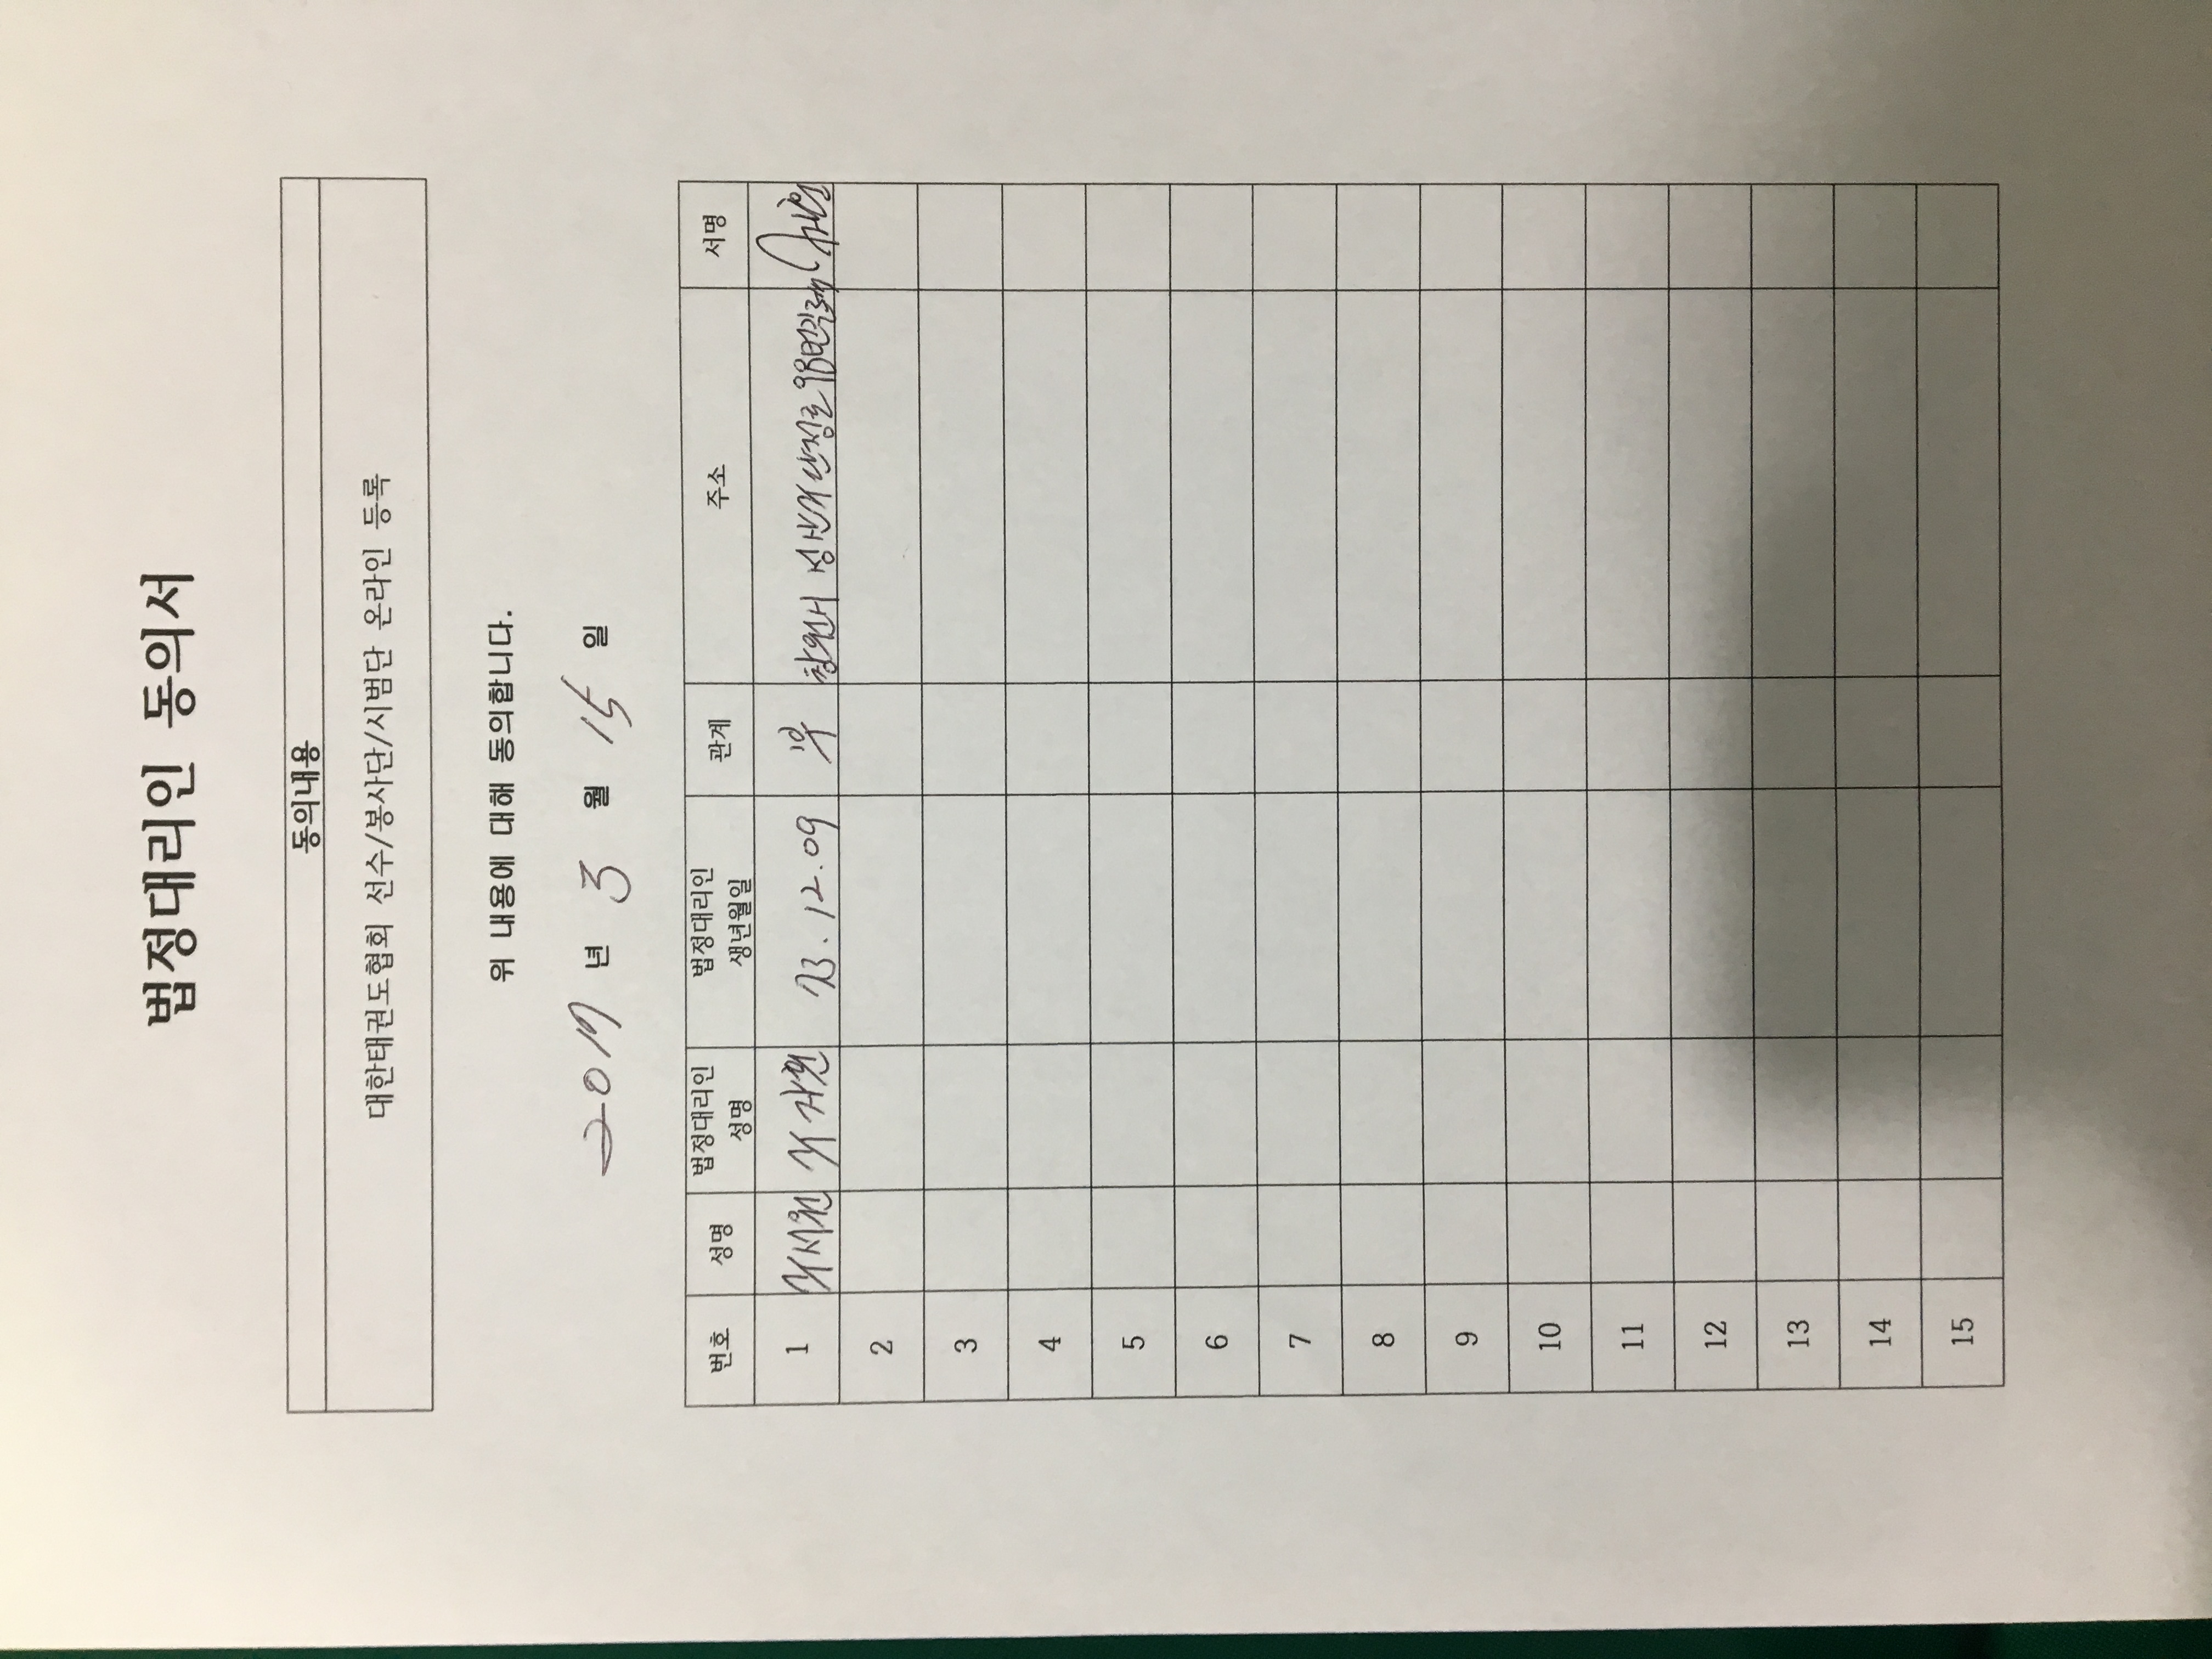 법정대리인 동의서
동의내용
대한태권도협회 선수/봉사단/시범단 온라인 등록
위 내용에 대해 동의합니다.
2017 년 3 월 15 일
번호 성명 법정대리인 성명 법정대리인 생년월일 관계 주소 서명
1 73.12.09 부 창원시 성산구 98번길
2
3
4
5
6
7
8
9
10
11
12
13
14
15